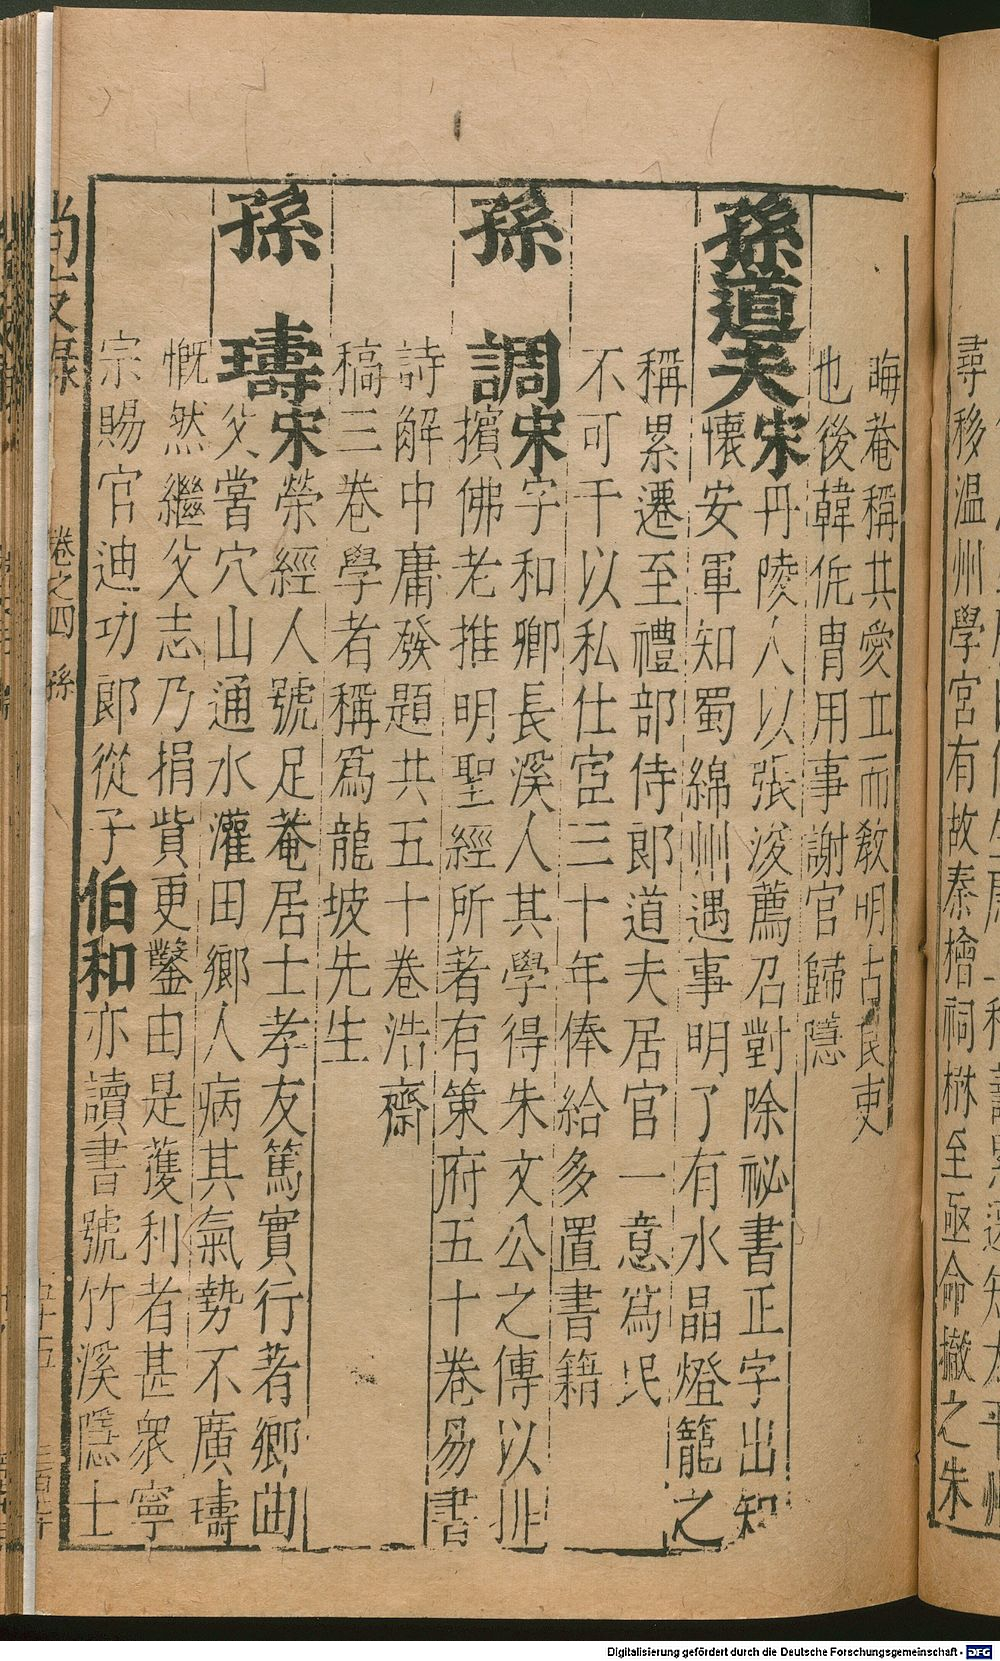 尋移温州學宮有故秦檜祠楙至亟命撤之朱
晦菴稱其愛立而敎明古民吏
也後韓侂冑用事謝官歸隱
孫道夫宋丹陵人以張浚薦召對除祕書正字出知
懐安軍知蜀綿州遇事明了有水晶燈籠之
稱累遷至禮部侍郎道夫居官一意爲民
不可干以私仕宦三十年俸給多置書籍
孫調宋字和卿長溪人其學得朱文公之傳以排
擯佛老推明聖經所著有策府五十卷易書
詩解中庸發題共五十卷浩齋
稿三卷學者稱爲龍坡先生
孫璹宋榮經人號足菴居士孝友篤實行著鄉曲
父嘗穴山通水灌田鄉人病其氣勢不廣璹
慨然繼父志乃捐貲更鑿由是蒦利者甚衆寧
宗賜官迪功郎從子伯和亦讀書號竹溪隱士
尚友录 卷之四 孫
Digitalisierung gefördert durch die Deutsche Forschungsgemeinschaft - DFG